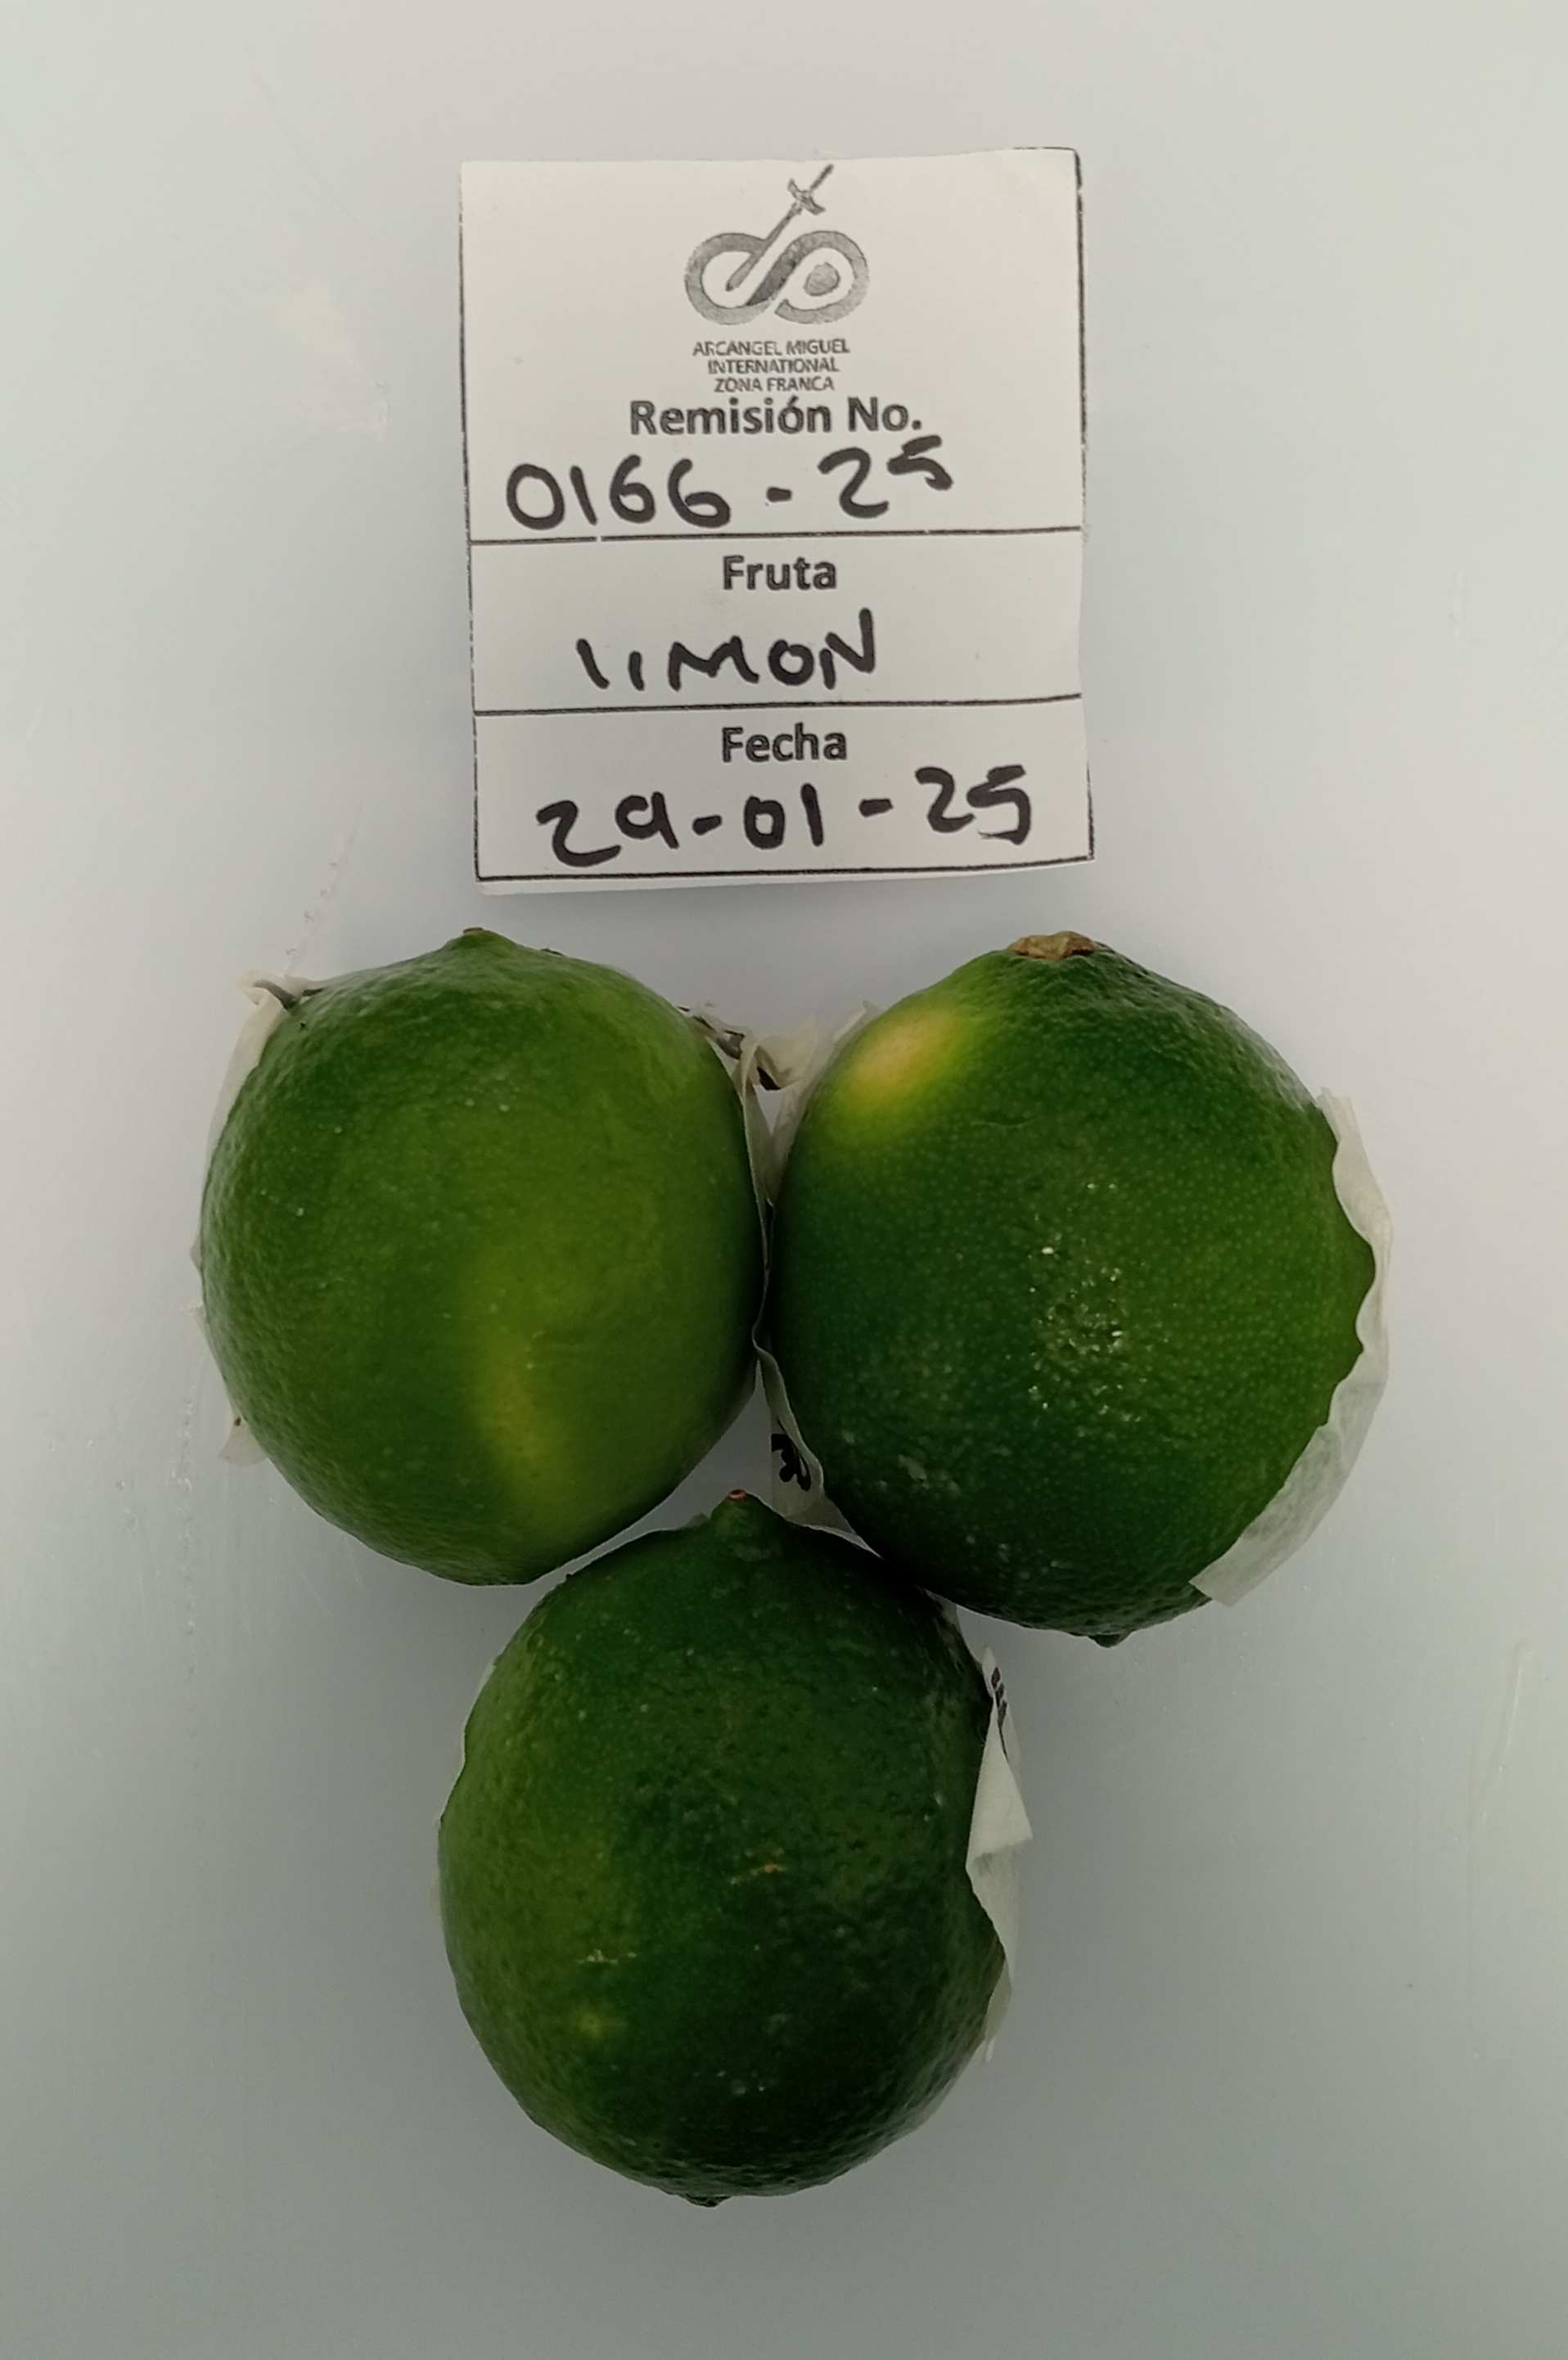 ARCANGEL MIGUEL
INTERNATIONAL
ZONA FRANCA
Remisión No.
0166-25
Fruta
lIMON
Fecha
29-01-25